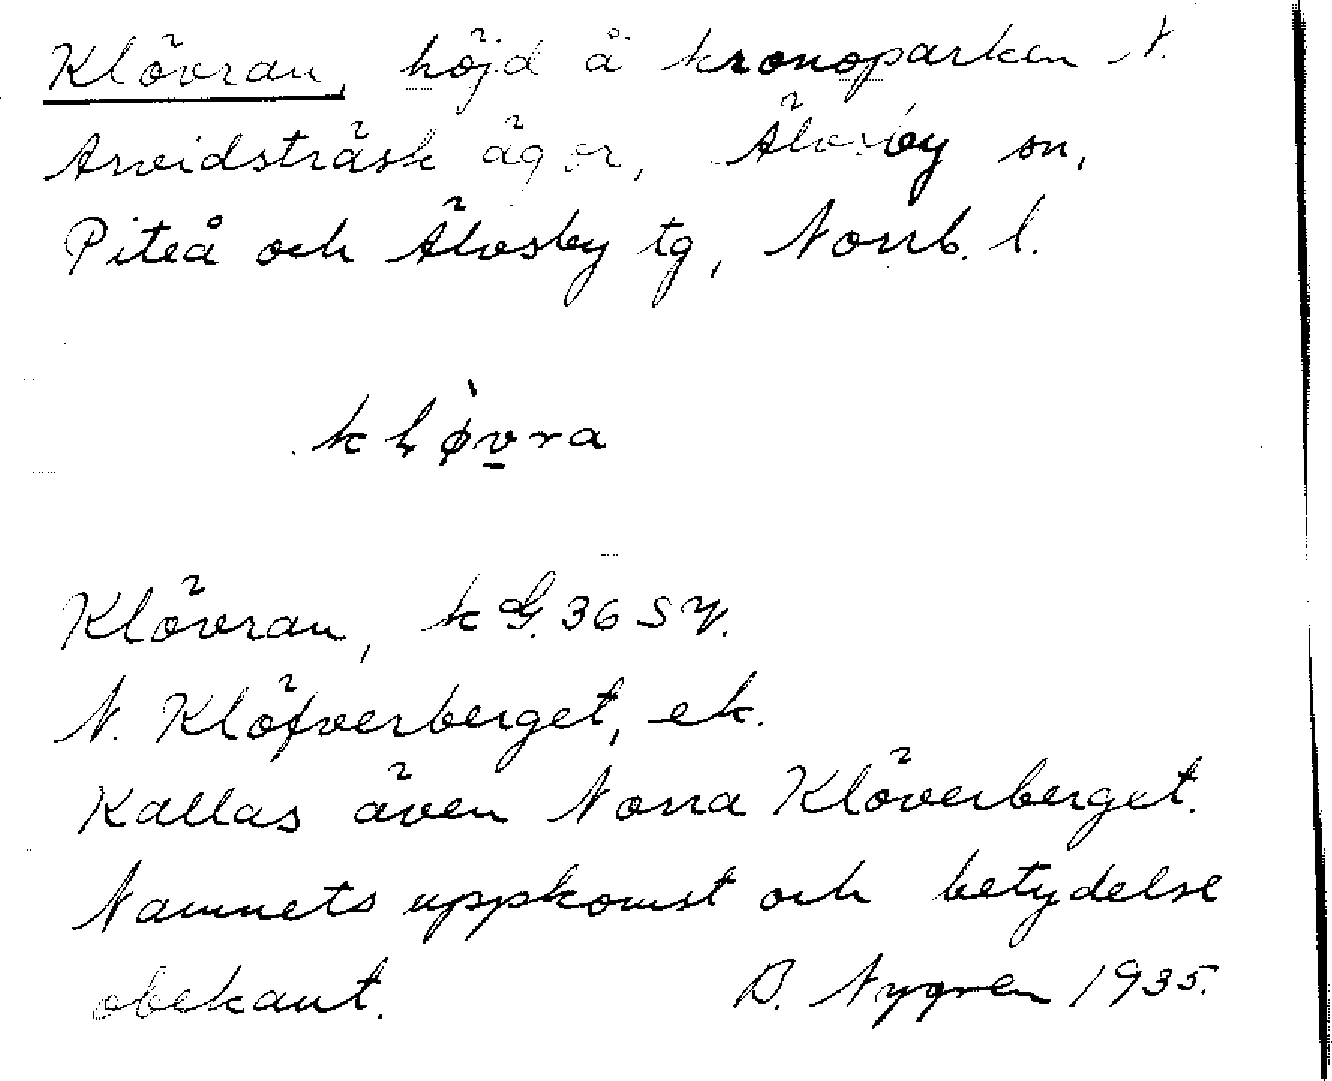 Klövran, höjd å kronoparken N.
Arvidsträsk ägor, Älvsby sn,
Piteå och Älvsby tg, Norrb. l.
kḷø̀v̲ra
Klövran, kG. 36 SV.
N. Klöfverberget, ek.
Kallas även Norra Klöverberget.
Namnets uppkomst och betydelse
obekant. B. Nygren 1935.